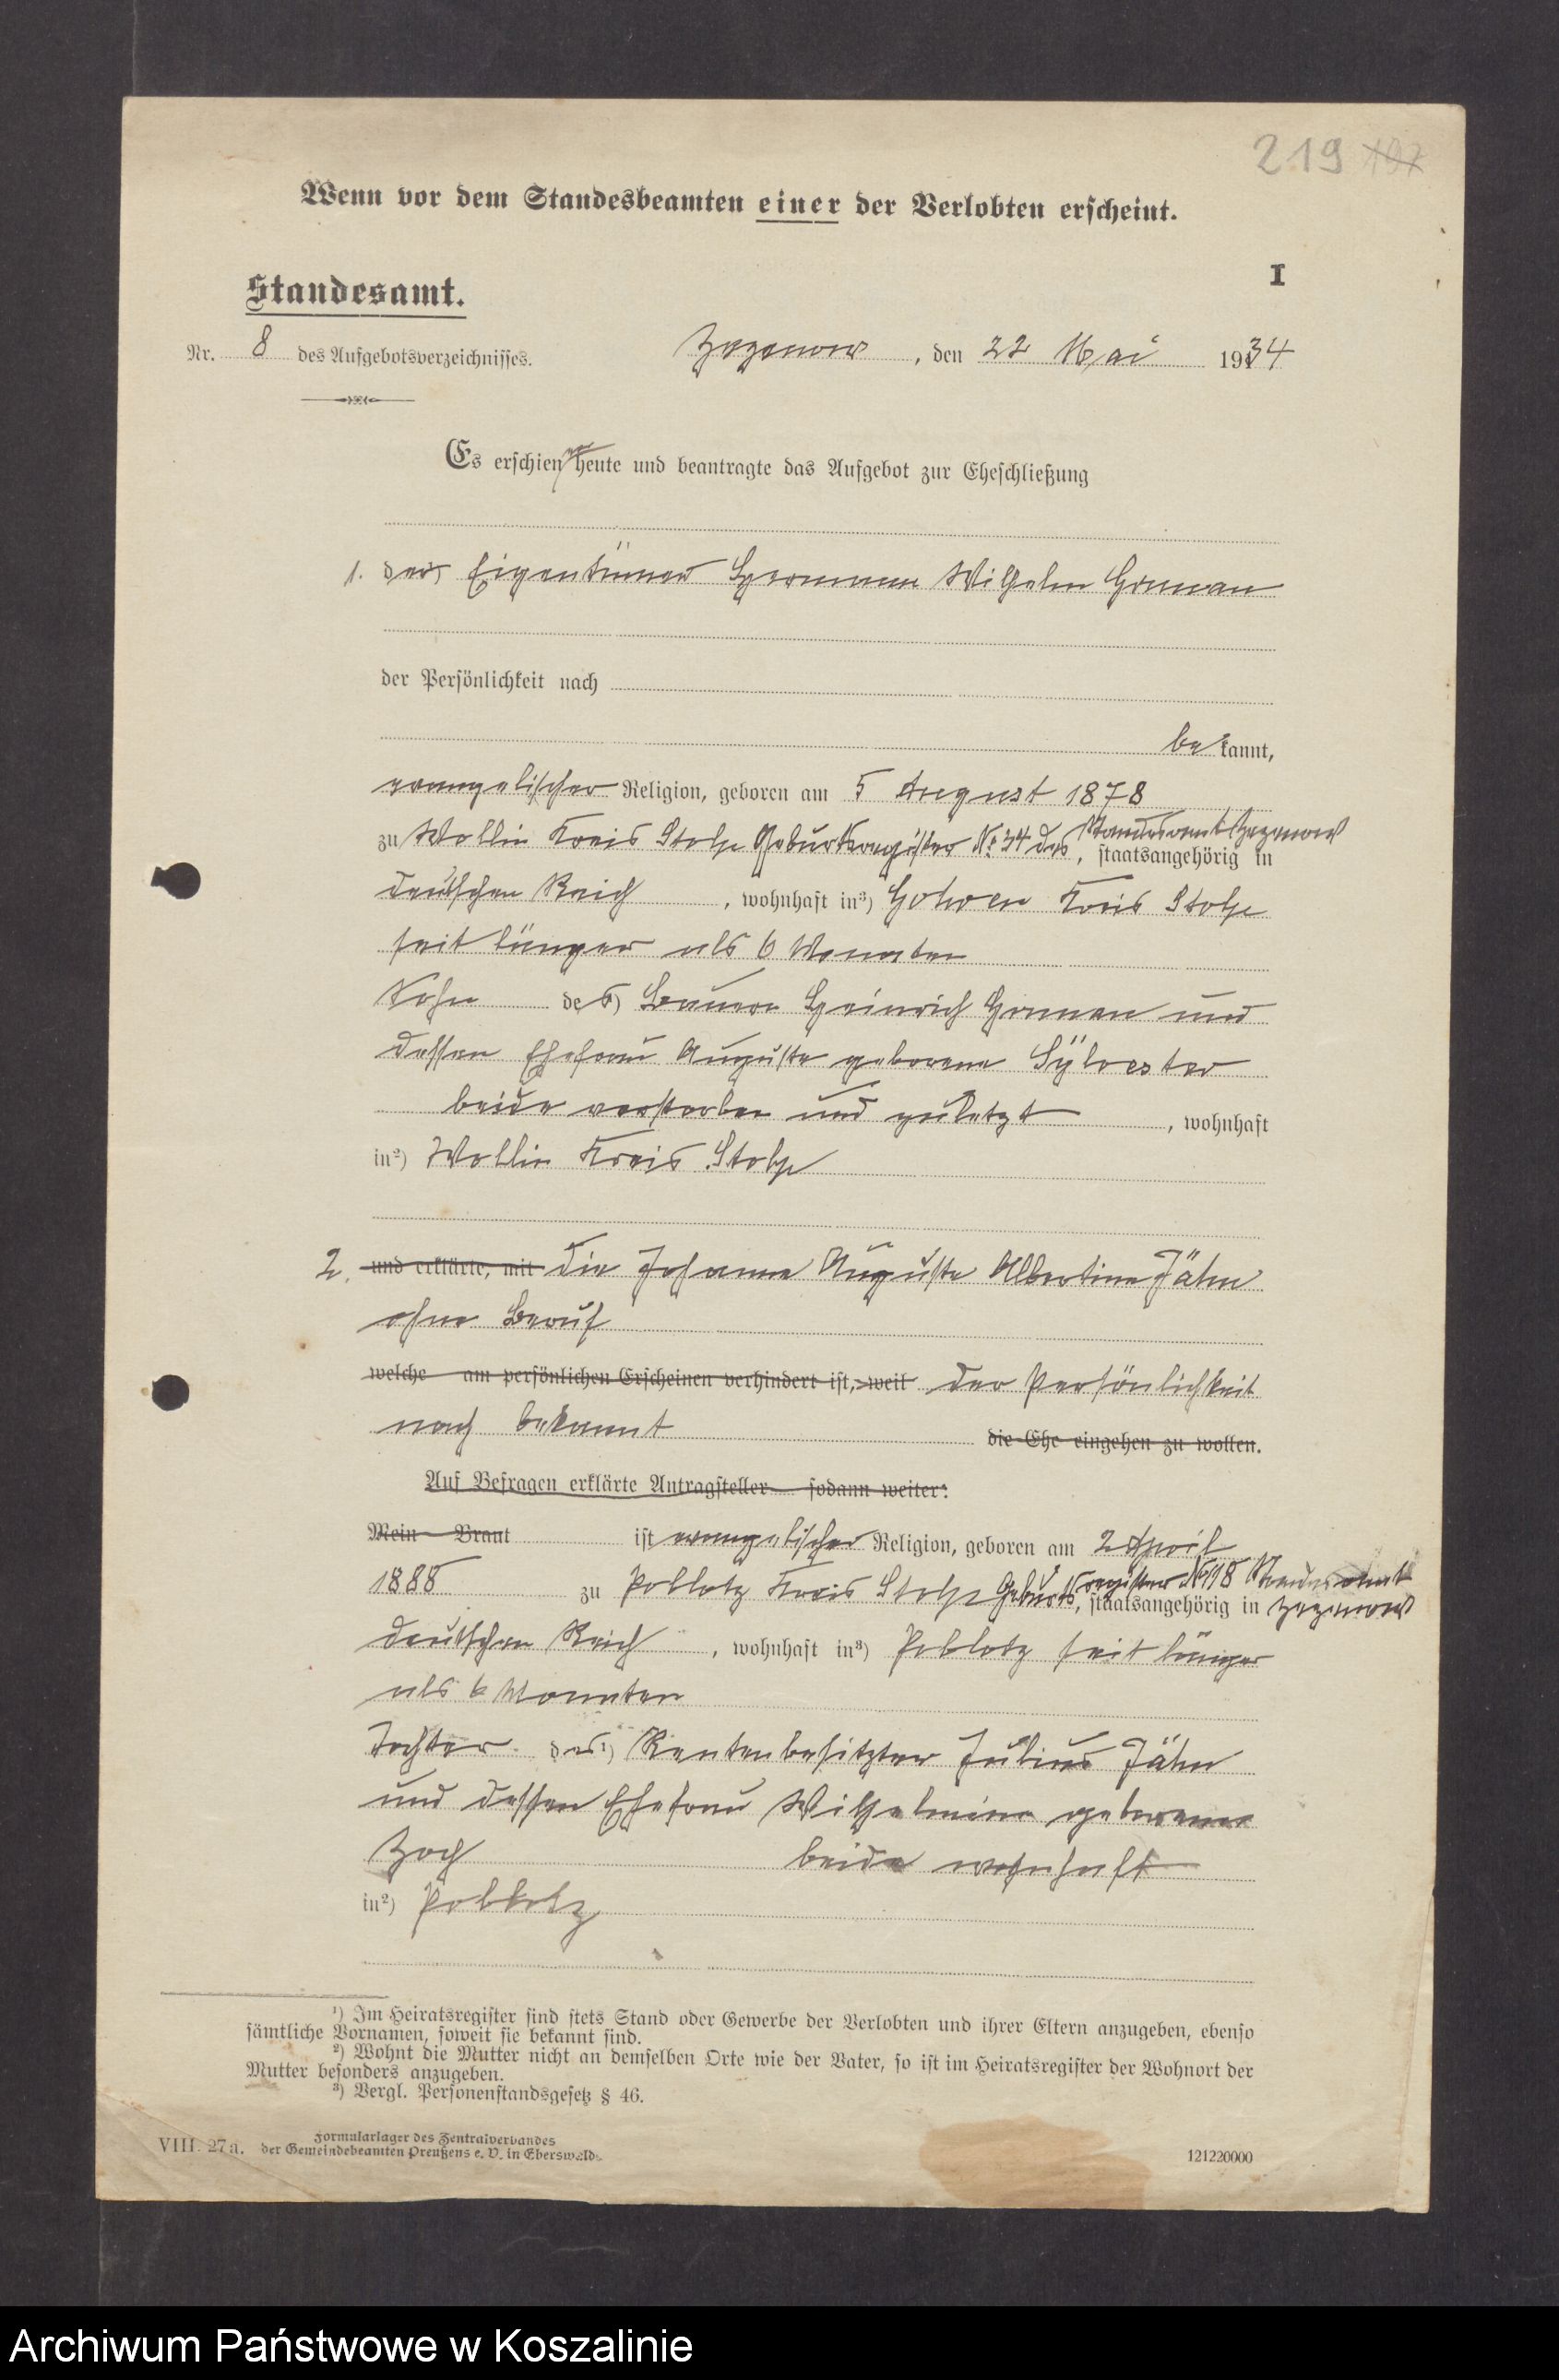 219 197
Wenn vor dem Standesbeamten einer der Verlobten erscheint.
I
Standesamt.
Nr. 8 des Aufgebotsverzeichnisses.
Zezenow, den 22 Mai 1934
Es erschienen heute und beantragte das Aufgebot zur Eheschließung
1. der Eigentümer Hermann Wilhelm
der Persönlichkeit nach
be kannt,
evangelischer Religion, geboren am 5 August 1878
zu Wollin Kreis Stolp Geburtsregister № 34 des Standesamt Zezenow, staatsangehörig in
deutschen Reich, wohnhaft in³) Gohren Kreis Stolp
seit länger als 6 Monaten
Sohn des¹) Bauern Heinrich und
dessen Ehefrau Auguste geborene Sylvester
beide verstorben und zuletzt, wohnhaft
in²) Wollin Kreis Stolp
2. und erklärte, mit die Johanna Auguste Albertine Jähn
ohne Beruf
welche am persönlichen Erscheinen verhindert ist, weil der Persönlichkeit
nach bekannt die Ehe eingehen zu wollen.
Auf Befragen erklärte Antragsteller sodann weiter:
Mein Braut ist evangelischer Religion, geboren am 2 April
1888 zu Poblotz Kreis Stolp Geburtsregister № 98 Standesamt Zezenow, staatsangehörig in
deutschen Reich, wohnhaft in³) Poblotz seit länger
als 6 Monaten
Tochter des¹) Rentenbesitzter Julius Jähn
und dessen Ehefrau Wilhelmine geborene
Zoch beide wohnhaft
in²) Poblotz
¹) Im Heiratsregister sind stets Stand oder Gewerbe der Verlobten und ihrer Eltern anzugeben, ebenso
sämtliche Vornamen, soweit sie bekannt sind.
²) Wohnt die Mutter nicht an demselben Orte wie der Vater, so ist im Heiratsregister der Wohnort der
Mutter besonders anzugeben.
³) Vergl. Personenstandsgesetz § 46.
VIII. 27a. Formularlager des Zentralverbandes
der Gemeindebeamten Preußens e. V. in Eberswalde
121220000
Archiwum Państwowe w Koszalinie